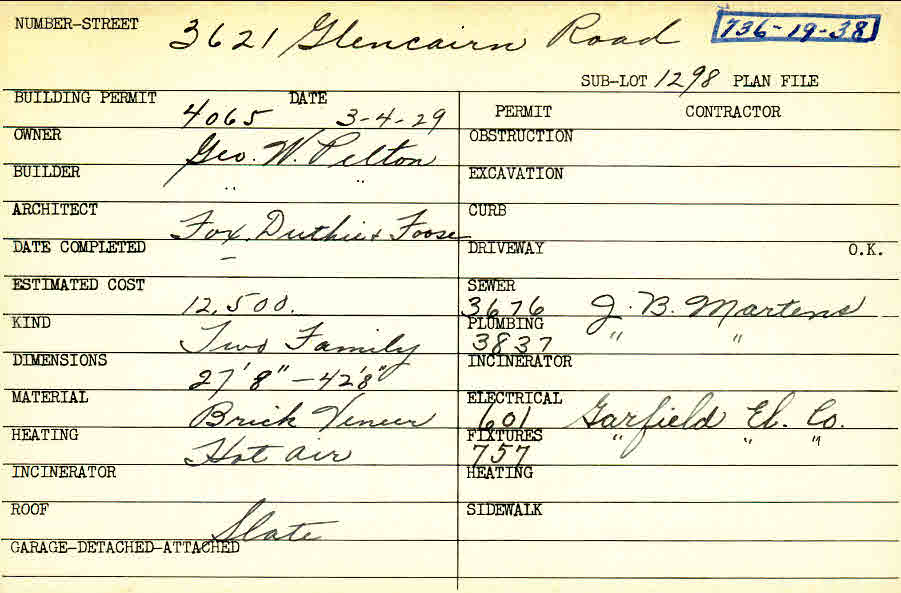 NUMBER-STREET 3621 Glencairn Road 736-19-38
SUB-LOT 1298 PLAN FILE
BUILDING PERMIT 4065 DATE 3-4-29
OWNER Geo. W. Pelton
BUILDER " "
ARCHITECT Fox, Duthie & Foose
DATE COMPLETED –
ESTIMATED COST 12,500.
KIND Two Family
DIMENSIONS 27'8" – 42'8"
MATERIAL Brick Veneer
HEATING Hot air
INCINERATOR
ROOF Slate
GARAGE-DETACHED-ATTACHED
PERMIT CONTRACTOR
OBSTRUCTION
EXCAVATION
CURB
DRIVEWAY O.K.
SEWER 3676 J. B. Martens
PLUMBING 3837 " "
INCINERATOR
ELECTRICAL 601 Garfield El. Co.
FIXTURES 757 " " "
HEATING
SIDEWALK